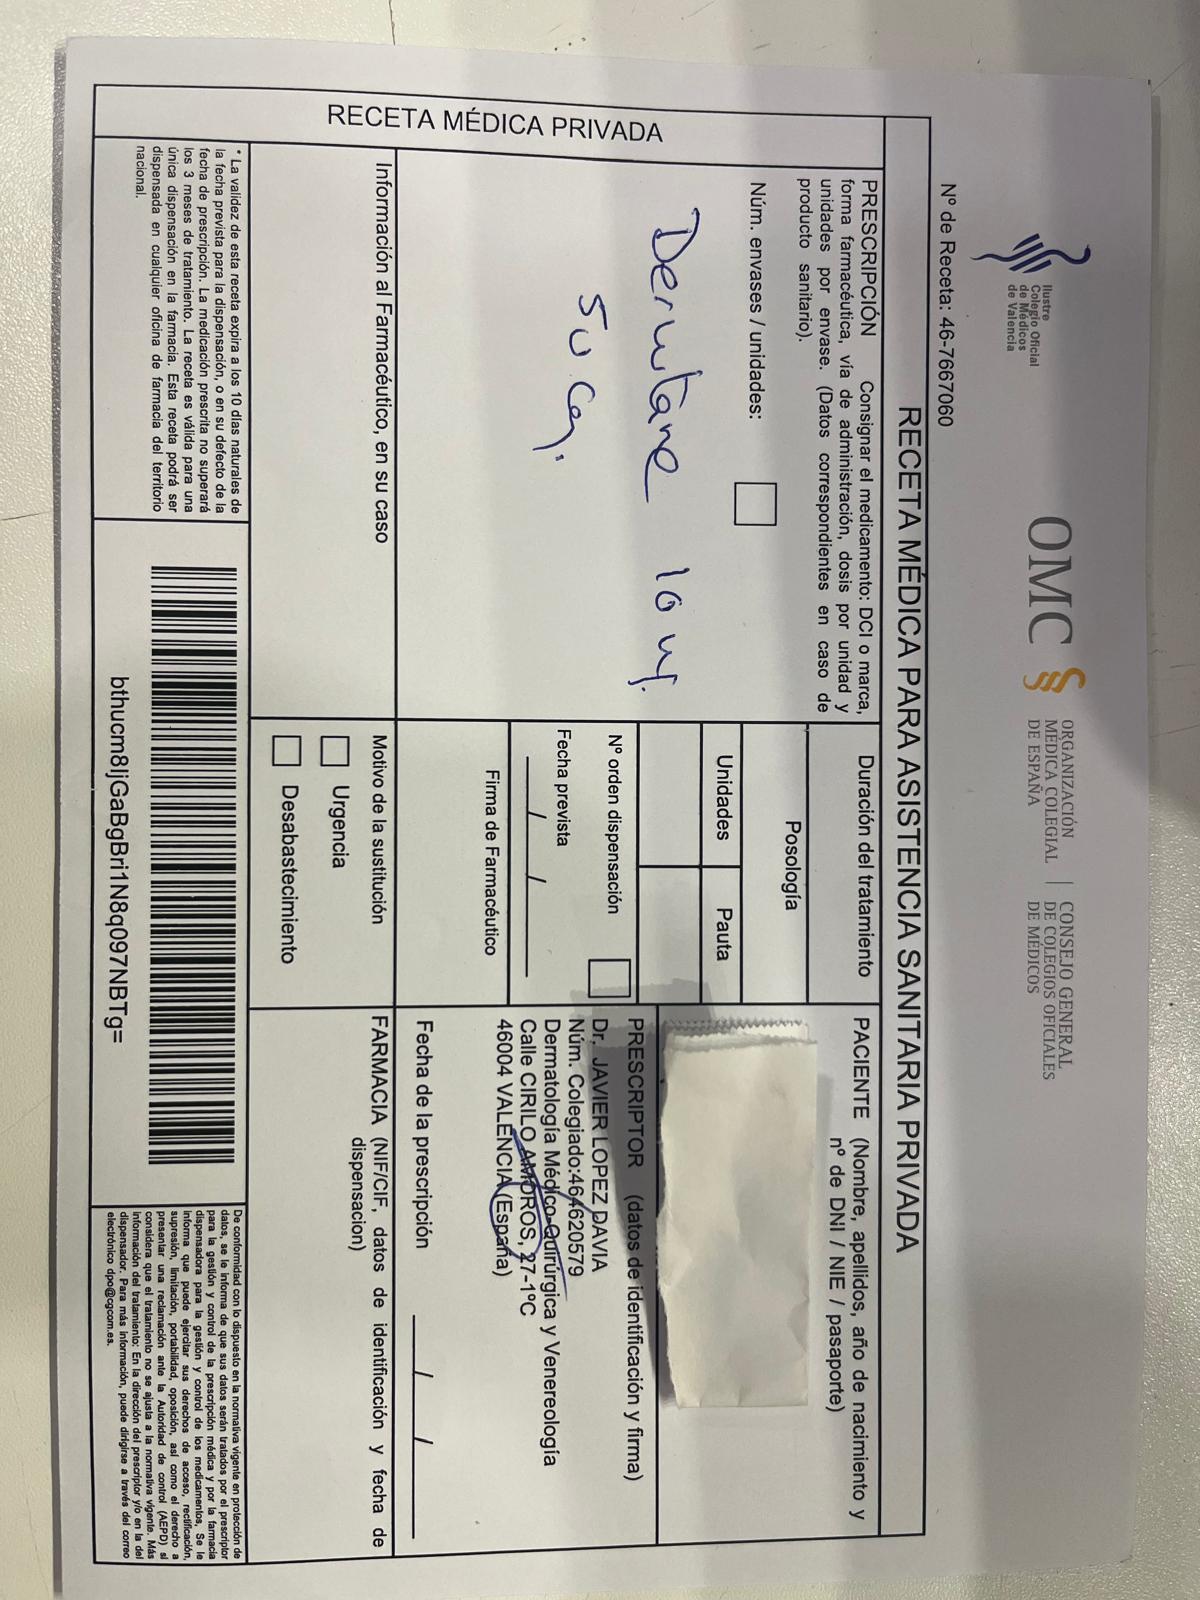 Ilustre
Colegio Oficial
de Médicos
de Valencia
OMC
ORGANIZACIÓN
MÉDICA COLEGIAL
DE ESPAÑA
CONSEJO GENERAL
DE COLEGIOS OFICIALES
DE MÉDICOS
Nº de Receta: 46-7667060
RECETA MÉDICA PARA ASISTENCIA SANITARIA PRIVADA
RECETA MÉDICA PRIVADA
PRESCRIPCIÓN Consignar el medicamento: DCI o marca,
forma farmacéutica, vía de administración, dosis por unidad y
unidades por envase. (Datos correspondientes en caso de
producto sanitario).
Núm. envases / unidades:
Dercutane 10
50
Duración del tratamiento
Posología
Unidades Pauta
Nº orden dispensación
Fecha prevista
/ /
Firma de Farmacéutico
PACIENTE (Nombre, apellidos, año de nacimiento y
nº de DNI / NIE / pasaporte)
PRESCRIPTOR (datos de identificación y firma)
Dr. JAVIER LOPEZ DAVIA
Núm. Colegiado:464620579
Dermatología Médico-Quirúrgica y Venereología
Calle CIRILO AMOROS, 27-1ºC
46004 VALENCIA (España)
Fecha de la prescripción / /
Información al Farmacéutico, en su caso
Motivo de la sustitución
Urgencia
Desabastecimiento
FARMACIA (NIF/CIF, datos de identificación y fecha de
dispensacion)
* La validez de esta receta expira a los 10 días naturales de
la fecha prevista para la dispensación, o en su defecto de la
fecha de prescripción. La medicación prescrita no superará
los 3 meses de tratamiento. La receta es válida para una
única dispensación en la farmacia. Esta receta podrá ser
dispensada en cualquier oficina de farmacia del territorio
nacional.
bthucm8IjGaBgBri1N8q097NBTg=
De conformidad con lo dispuesto en la normativa vigente en protección de
datos, se le informa de que sus datos serán tratados por el prescriptor
para la gestión y control de la prescripción médica y por la farmacia
dispensadora para la gestión y control de los medicamentos, Se le
informa que puede ejercitar sus derechos de acceso, rectificación,
supresión, limitación, portabilidad, oposición, así como el derecho a
presentar una reclamación ante la Autoridad de control (AEPD) si
considera que el tratamiento no se ajusta a la normativa vigente. Más
información del tratamiento: En la dirección del prescriptor y/o en la del
dispensador. Para más información, puede dirigirse a través del correo
electrónico dpo@cgcom.es.